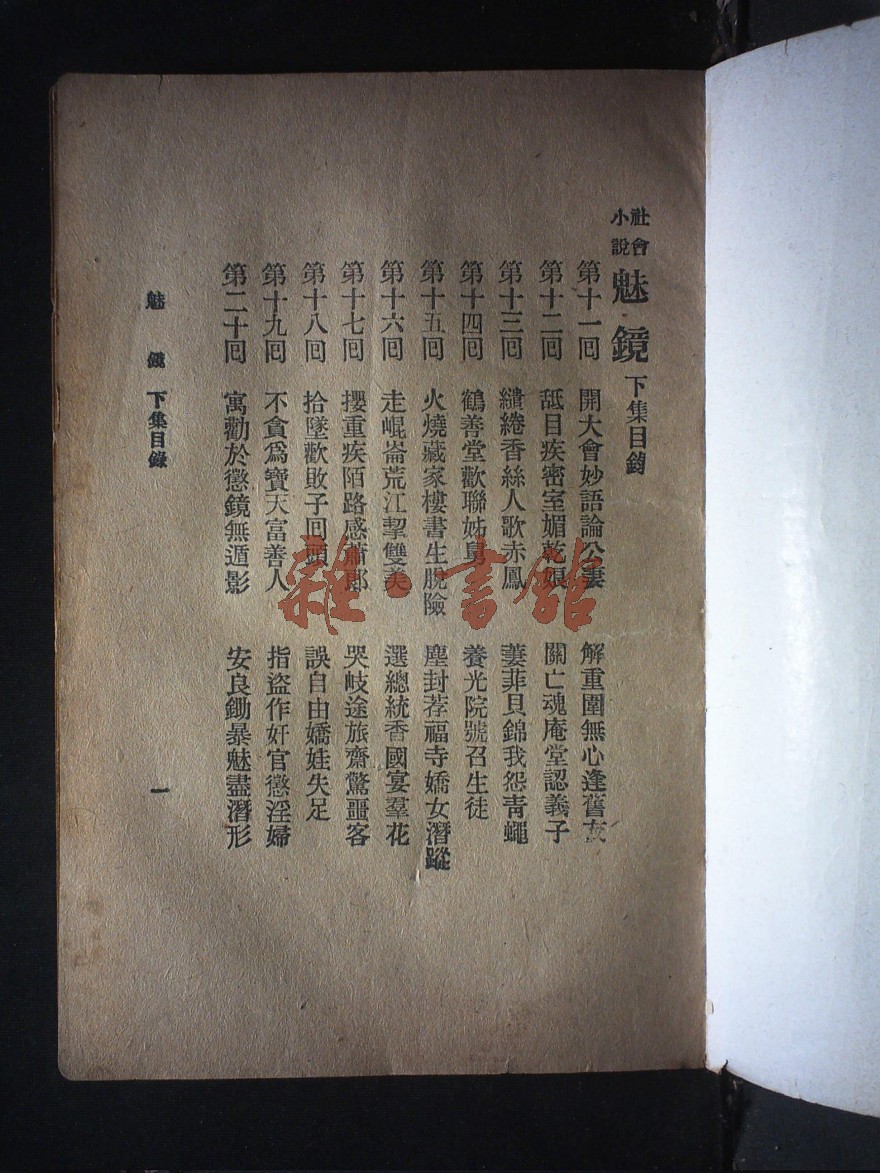 社會小說 魅鏡 下集目錄
第十一回 開大會妙語論公妻 解重圍無心逢舊友
第十二回 舐目疾密室媚乾娘 關亡魂庵堂認義子
第十三回 繾綣香絲人歌赤鳳 萋菲貝錦我怨青蠅
第十四回 鶴善堂歡聯姊舅 養光院號召生徒
第十五回 火燒藏家樓書生脫險 塵封荐福寺嬌女潛蹤
第十六回 走崐崙荒江挈雙美 選總統香國宴羣花
第十七回 攖重疾陌路感蕭郎 哭岐途旅齋驚噩客
第十八回 拾墜歡敗子回頭 誤自由嬌娃失足
第十九回 不貪爲寶天富善人 指盜作奸官懲淫婦
第二十回 寓勸於懲鏡無遁影 安良鋤暴魅盡潛形
魅鏡 下集目錄
一
雜·書館